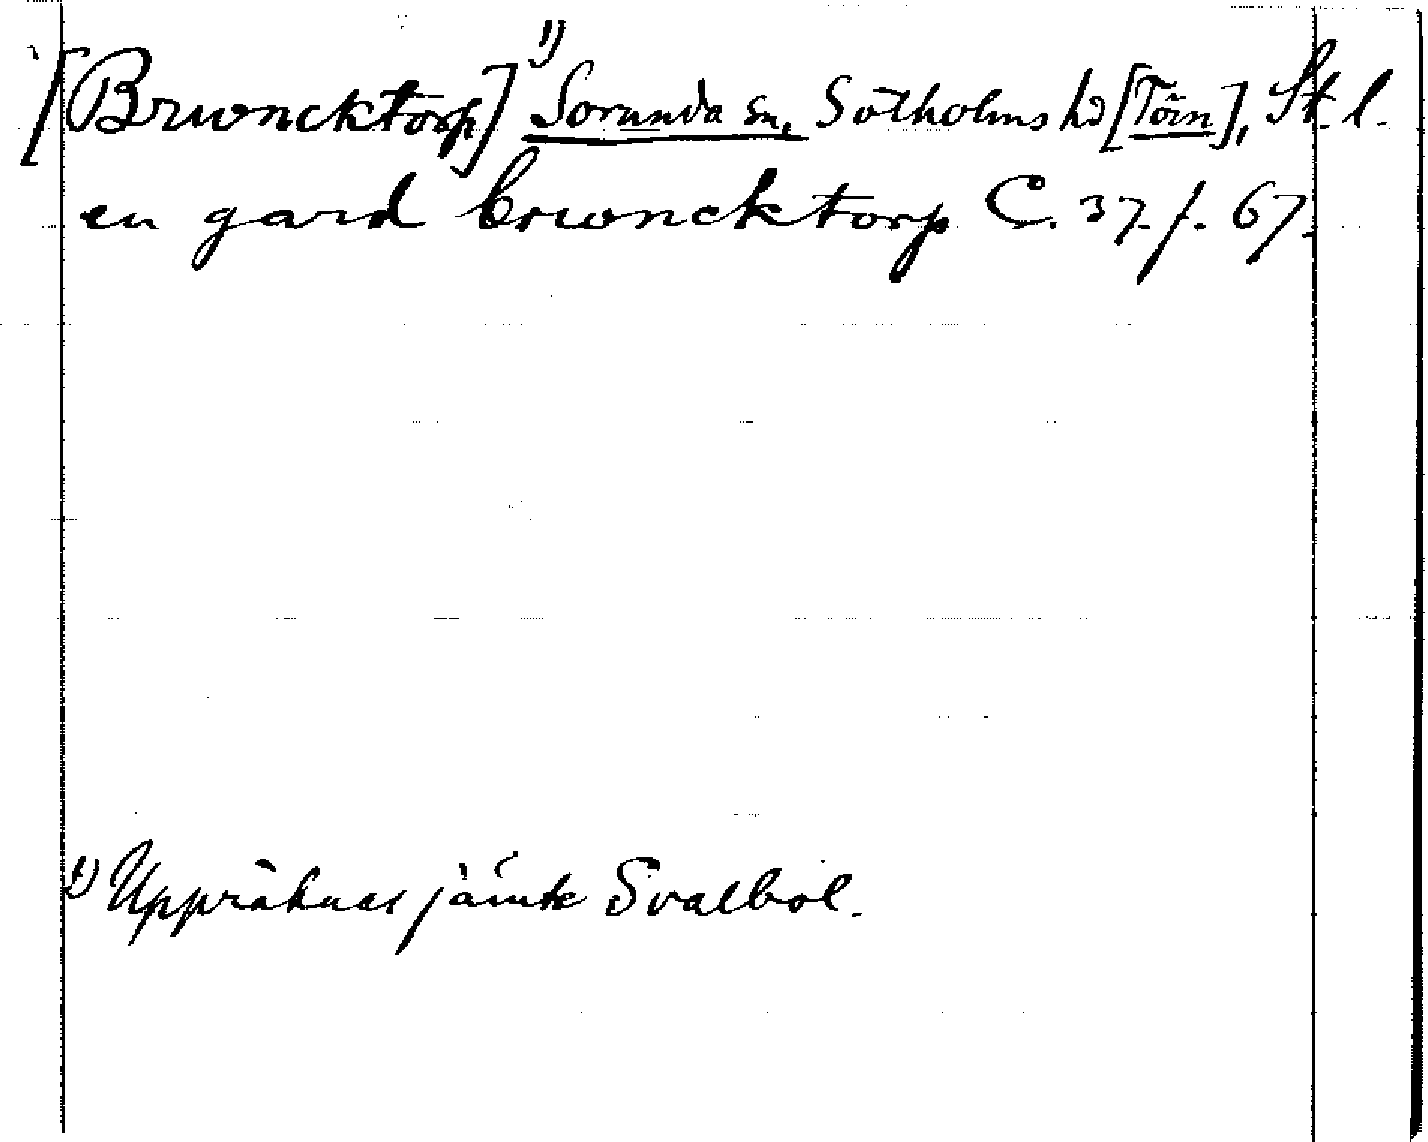 [Brwoncktorp] 1) Sorunda sn, Sotholms hd [Törn], St. l.
en gard brwoncktorp C. 37. f. 67.
1) Uppräknas jämte Svalbol.